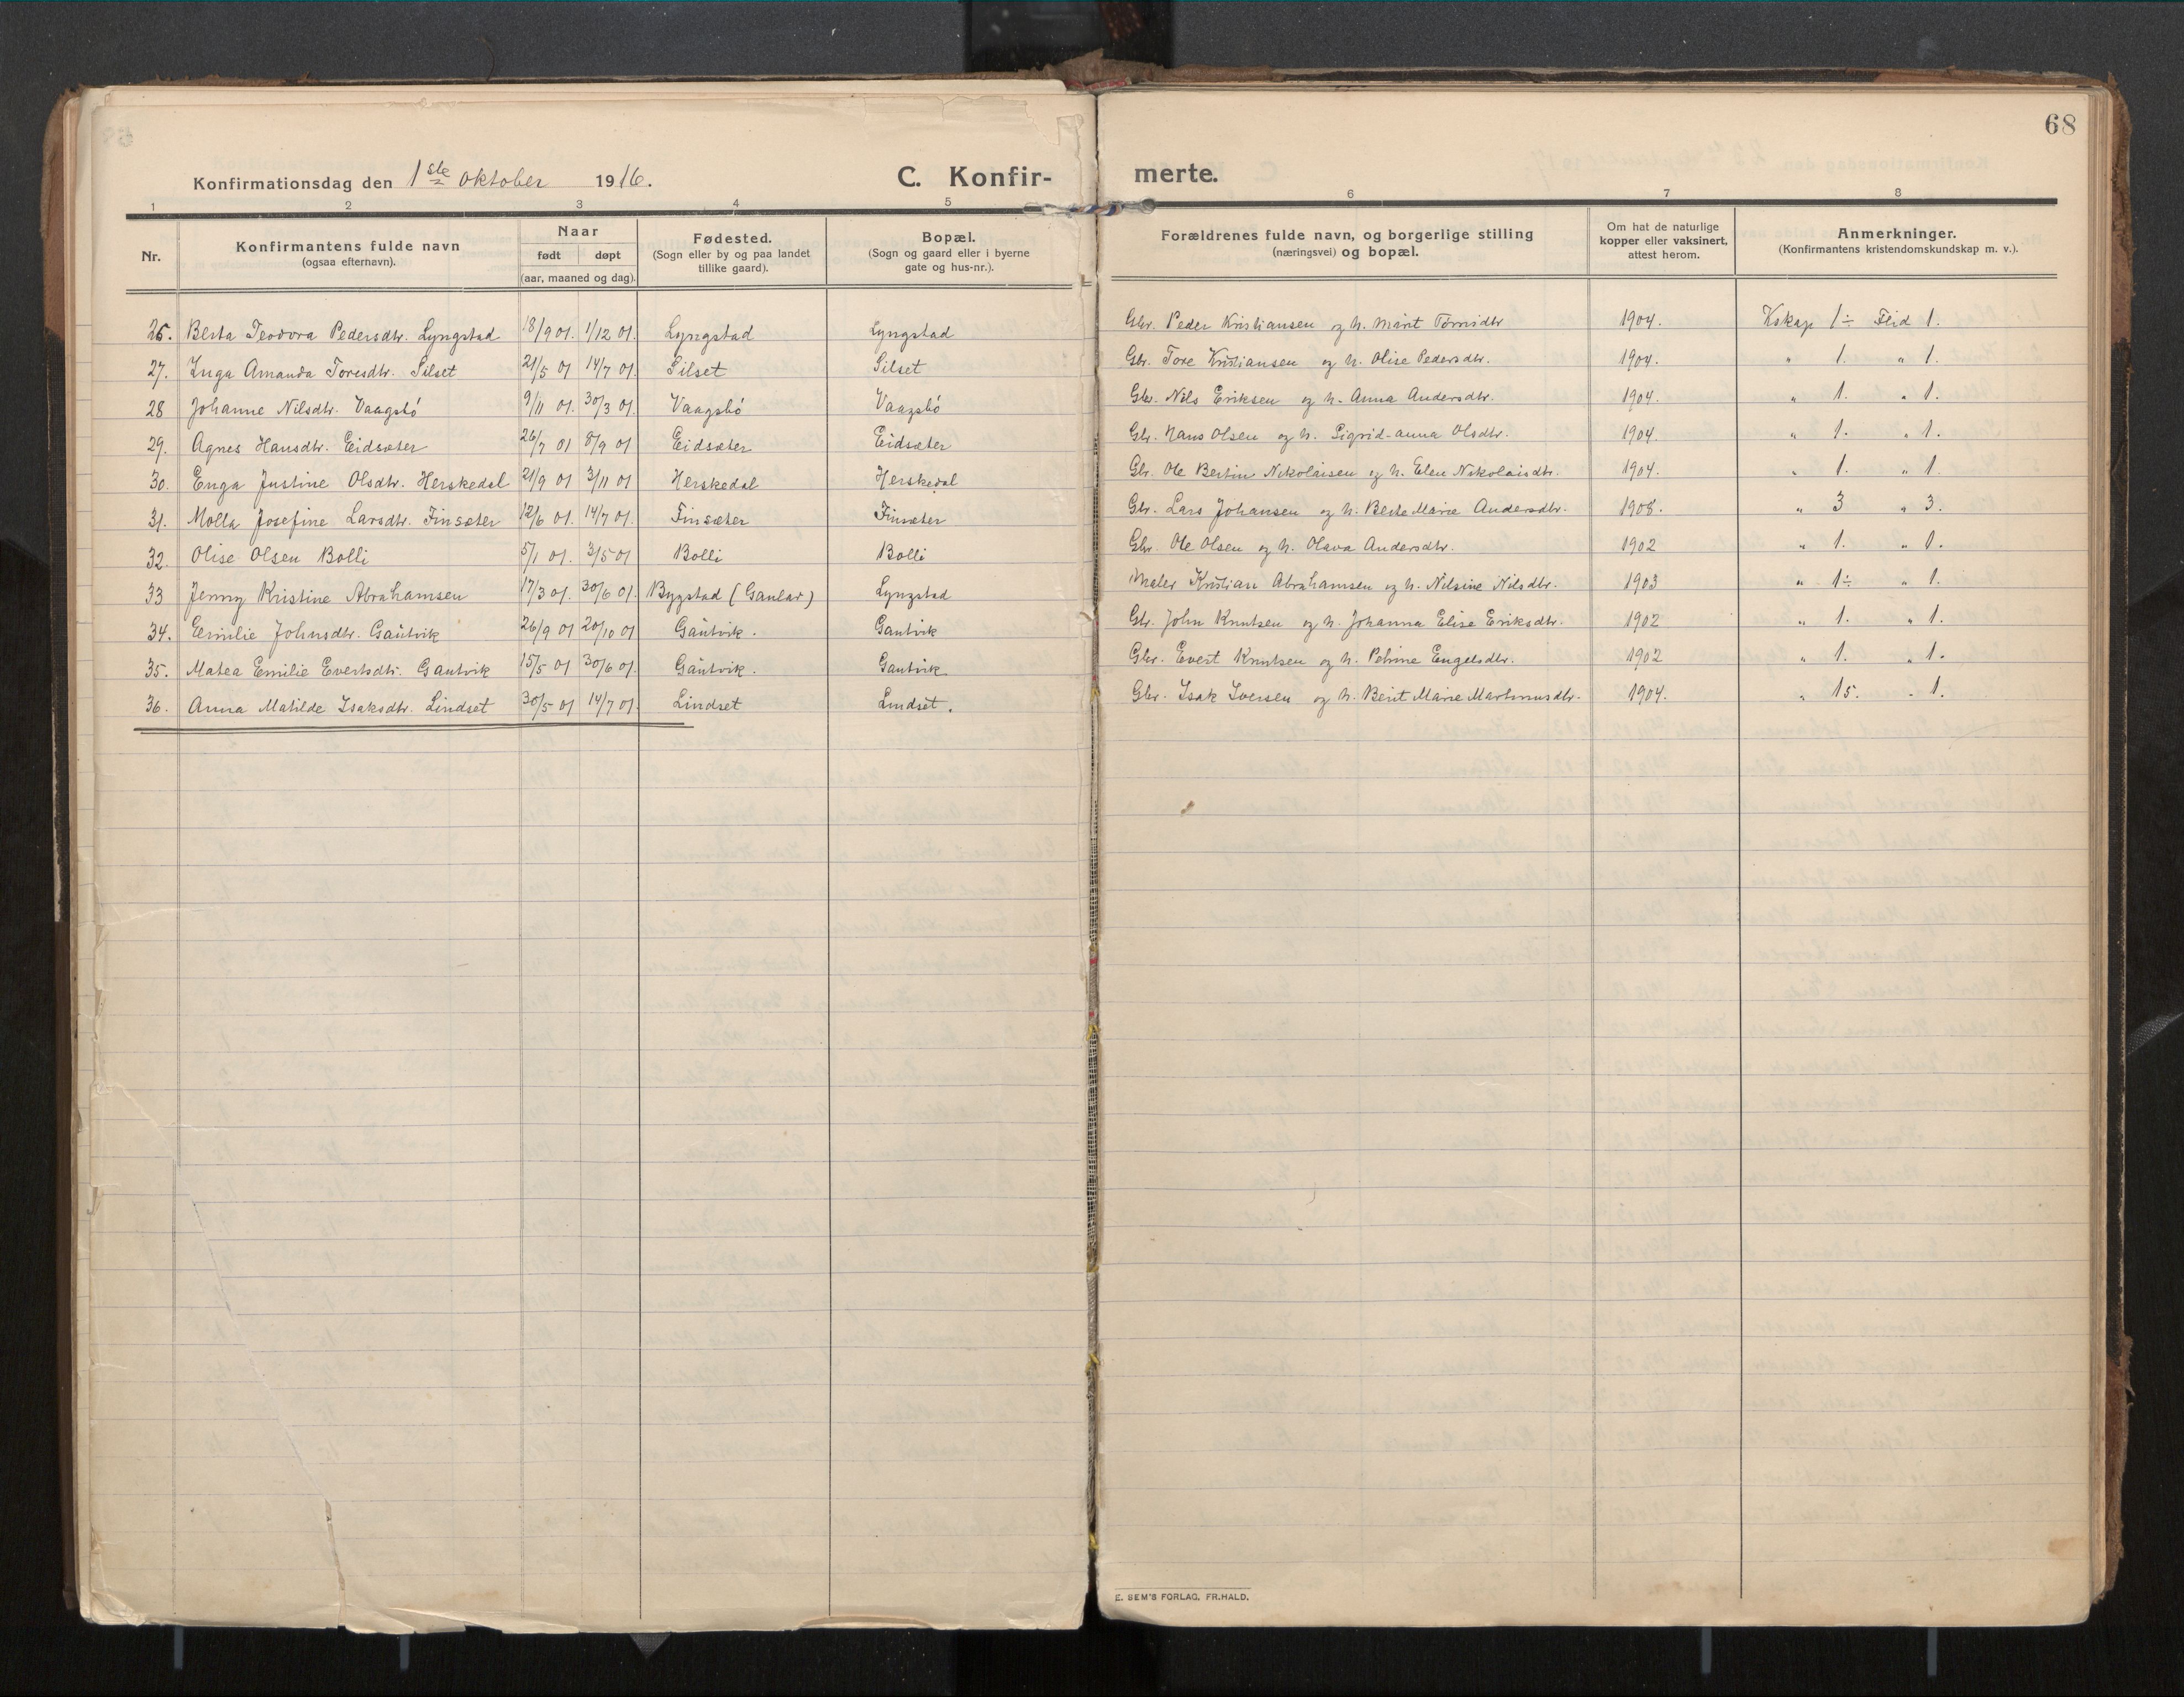 68
Konfirmationsdag den 1ste oktober 1916.
C. Konfir-
merte.
1 2 3 4 5 6 7 8
Nr.
Konfirmantens fulde navn
(ogsaa efternavn).
Naar
født døpt
(aar, maaned og dag).
Fødested.
(Sogn eller by og paa landet
tillike gaard).
Bopæl.
(Sogn og gaard eller i byerne
gate og hus-nr.).
Forældrenes fulde navn, og borgerlige stilling
(næringsvei) og bopæl.
Om hat de naturlige
kopper eller vaksinert,
attest herom.
Anmerkninger.
(Konfirmantens kristendomskundskap m. v.).
26. Berta Teodora Pedersdtr. Lyngstad 18/9 01. 1/12 01. Lyngstad Lyngstad Gbr. Peder Kristiansen og h. Marit 1904. Kskap 1÷ Flid 1.
27. Inga Amanda Toresdtr. Silset 21/5 01 14/7 01. Silset Silset Gbr. Tore Kristiansen og h. Olise Pedersdtr. 1904. " 1. " 1.
28 Johanne Nilsdtr. Vaagsbó 9/11 01. 30/3 01. Vaagsbó Vaagsbó Gbr. Nils Eriksen og h. Anna Andersdtr. 1904. " 1. " 1.
29. Agnes Hansdtr. Eidsæter 26/7 01 8/9 01 Eidsæter Eidsæter Gbr. Hans Olsen og h. Sigrid-anna Olsdtr. 1904. " 1. " 1.
30. Enga Justine Olsdtr. Herskedal 21/9 01 3/11 01 Herskedal Herskedal Gbr. Ole Bertin Nikolaisen og h. Elen Nikolaisdtr. 1904. " 1. " 1.
31. Molla Josefine Larsdtr. Finsæter 12/6 01. 14/7 01. Finsæter Finsæter Gbr. Lars Johansen og h. Berte Marie Andersdtr. 1908. " 3 " 3.
32. Olise Olsen Bolli 5/1 01. 3/5 01 Bolli Bolli Gbr. Ole Olsen og h. Olava Andersdtr. 1902 " 1. " 1.
33 Jenny Kristine Abrahamsen 17/3 01. 30/6 01. Bygstad (Gaular) Lyngstad Maler Kristian Abrahamsen og h. Nilsine Nilsdtr. 1903 " 1÷ " 1.
34. Emilie Johnsdtr. Gautvik 26/9 01 20/10 01 Gautvik. Gautvik Gbr. John Knutsen og h. Johanna Elise Eriksdtr. 1902 " 1. " 1.
35. Matea Emilie Evertsdtr. Gautvik 15/5 01 30/6 01. Gautvik. Gautvik Gbr. Evert Knutsen og h. Petrine Engelsdtr. 1902 " 1. " 1.
36. Anna Matilde Isaksdtr. Lindset 30/5 01 14/7 01. Lindset Lindset. Gbr. Isak Iversen og h. Berit Marie Martinusdtr. 1904. " 15. " 1.
E. SEM'S FORLAG, FR.HALD.